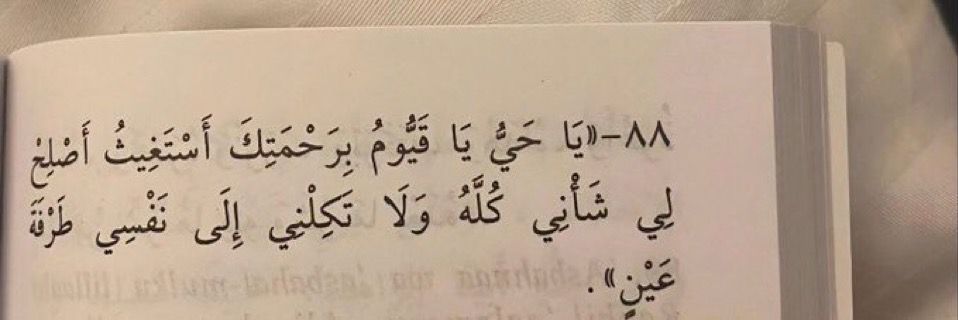 ٨٨-«يَا حَيُّ يَا قَيُّومُ بِرَحْمَتِكَ أَسْتَغِيثُ أَصْلِحْ
لِي شَأْنِي كُلَّهُ وَلَا تَكِلْنِي إِلَى نَفْسِي طَرْفَةَ
عَيْنٍ».